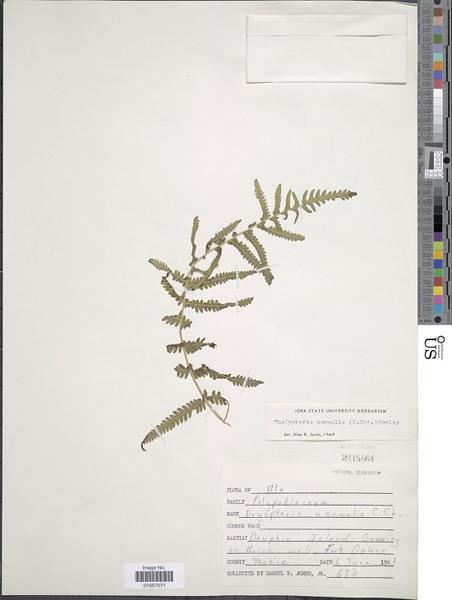 IOWA STATE UNIVERSITY HERBARIUM
Thelypteris normalis (C.Chr.) Moxley
det. Alan R. Smith, 1969
UNITED STATES
2415664
NATIONAL HERBARIUM
FLORA OF Ala
FAMILY Polypodiaceae
NAME Dryopteris normalis C. Chr.
COMMON NAME
HABITAT Dauphin Island - Growing
on brick wall, Fort Gaines
COUNTY Mobile DATE 6 June 1961
COLLECTED BY SAMUEL B. JONES, JR. 682
Image No.
01657071
US